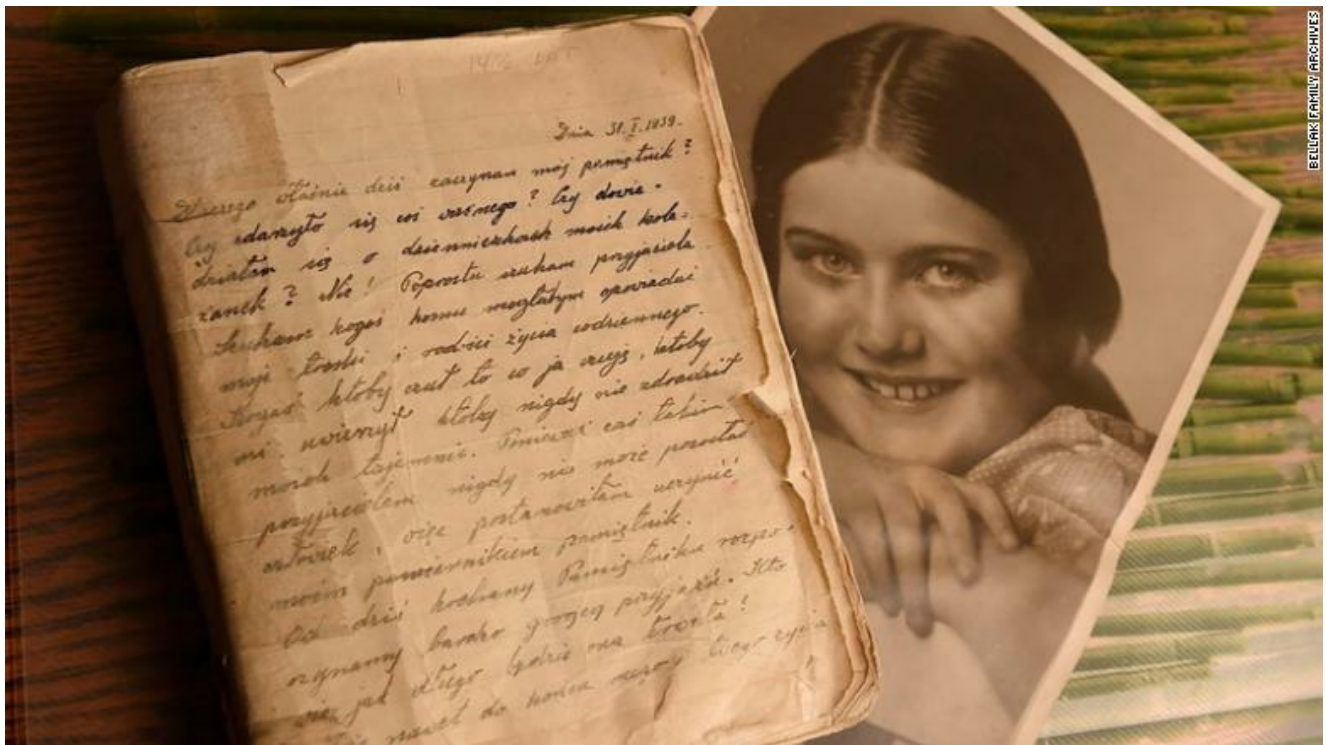 Dnia 31.I.1939.
właśnie dziś zaczynam mój pamiętnik?
Czy zdarzyło się coś ważnego? Czy dowie-
działam się o dzienniczkach moich kole-
żanek? Nie! Poprostu szukam przyjaciela.
Szukam kogoś komu mogłabym opowiadać
moje troski i radości życia codziennego.
Kogoś któby czuł to co ja czuję, któby
mi uwierzył któby nigdy nie zdradził
moich tajemnic. Ponieważ takim
przyjacielem nigdy nie może pozostać
człowiek, więc postanowiłam uczynić
moim powiernikiem pamiętnik.
Od dziś kochany Pamiętniku rozpo-
czynamy bardzo gorącą przyjaźń. Kto
wie jak długo będzie ona trwała!
nawet do końca życia
BELLAK FAMILY ARCHIVES